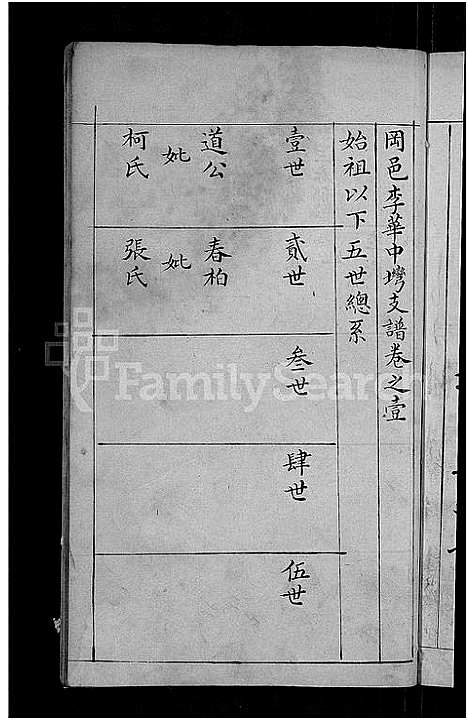 岡邑李華中灣支譜卷之壹
始祖以下五世總系
壹世
貳世
叁世
肆世
伍世
道公
妣
柯氏
春柏
妣
張氏
FamilySearch